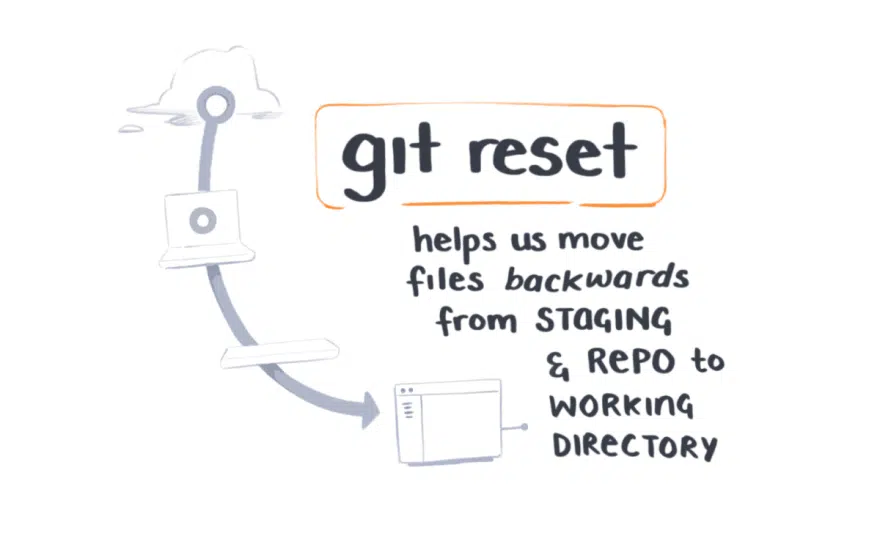 git reset
helps us move
files backwards
from STAGING
& REPO to
WORKING
DIRECTORY